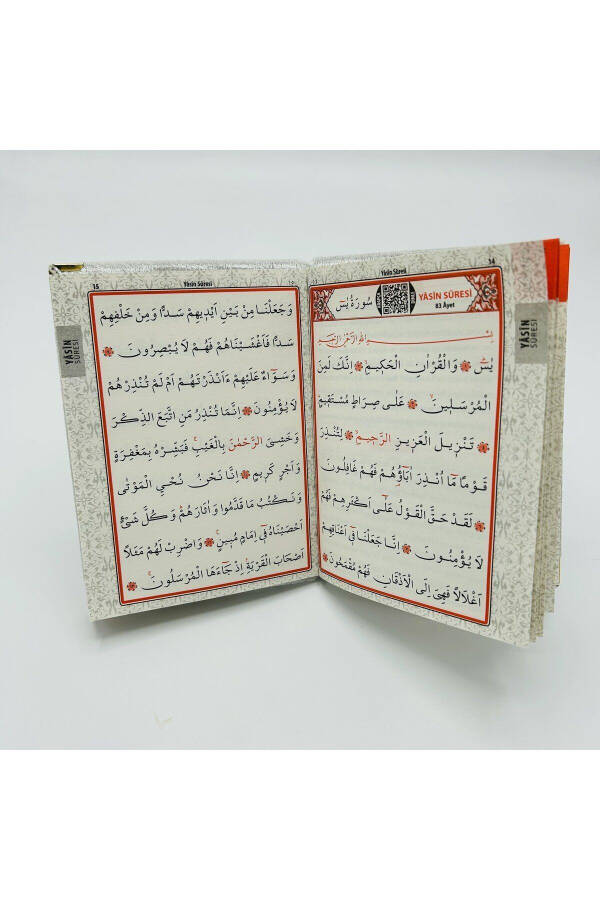 14
Yâsin Sûresi
سُورَةُ يٰسٓ
YÂSİN SÛRESİ
83 Âyet
بِسْمِ اللهِ الرَّحْمٰنِ الرَّحِيمِ
يٰسٓ ۚ وَالْقُرْاٰنِ الْحَكِيمِۙ اِنَّكَ لَمِنَ
الْمُرْسَلِينَۙ عَلٰى صِرَاطٍ مُسْتَقِيمٍۜ
تَنْزِيلَ الْعَزِيزِ الرَّحِيمِۙ لِتُنْذِرَ
قَوْمًا مَٓا اُنْذِرَ اٰبَٓاؤُ۬هُمْ فَهُمْ غَافِلُونَ
لَقَدْ حَقَّ الْقَوْلُ عَلٰٓى اَكْثَرِهِمْ فَهُمْ
لَا يُؤْمِنُونَ اِنَّا جَعَلْنَا فِٓي اَعْنَاقِهِمْ
اَغْلَالًا فَهِيَ اِلَى الْاَذْقَانِ فَهُمْ مُقْمَحُونَ
YÂSİN
SÛRESİ
15
Yâsin Sûresi
وَجَعَلْنَا مِنْ بَيْنِ اَيْدِيهِمْ سَدًّا وَمِنْ خَلْفِهِمْ
سَدًّا فَاَغْشَيْنَاهُمْ فَهُمْ لَا يُبْصِرُونَ
وَسَوَٓاءٌ عَلَيْهِمْ ءَاَنْذَرْتَهُمْ اَمْ لَمْ تُنْذِرْهُمْ
لَا يُؤْمِنُونَ اِنَّمَا تُنْذِرُ مَنِ اتَّبَعَ الذِّكْرَ
وَخَشِيَ الرَّحْمٰنَ بِالْغَيْبِۚ فَبَشِّرْهُ بِمَغْفِرَةٍ
وَاَجْرٍ كَرِيمٍ اِنَّا نَحْنُ نُحْيِ الْمَوْتٰى
وَنَكْتُبُ مَا قَدَّمُوا وَاٰثَارَهُمْۜ وَكُلَّ شَيْءٍ
اَحْصَيْنَاهُ فِٓي اِمَامٍ مُبِينٍ۟ وَاضْرِبْ لَهُمْ مَثَلًا
اَصْحَابَ الْقَرْيَةِۢ اِذْ جَٓاءَهَا الْمُرْسَلُونَۚ
YÂSİN
SÛRESİ